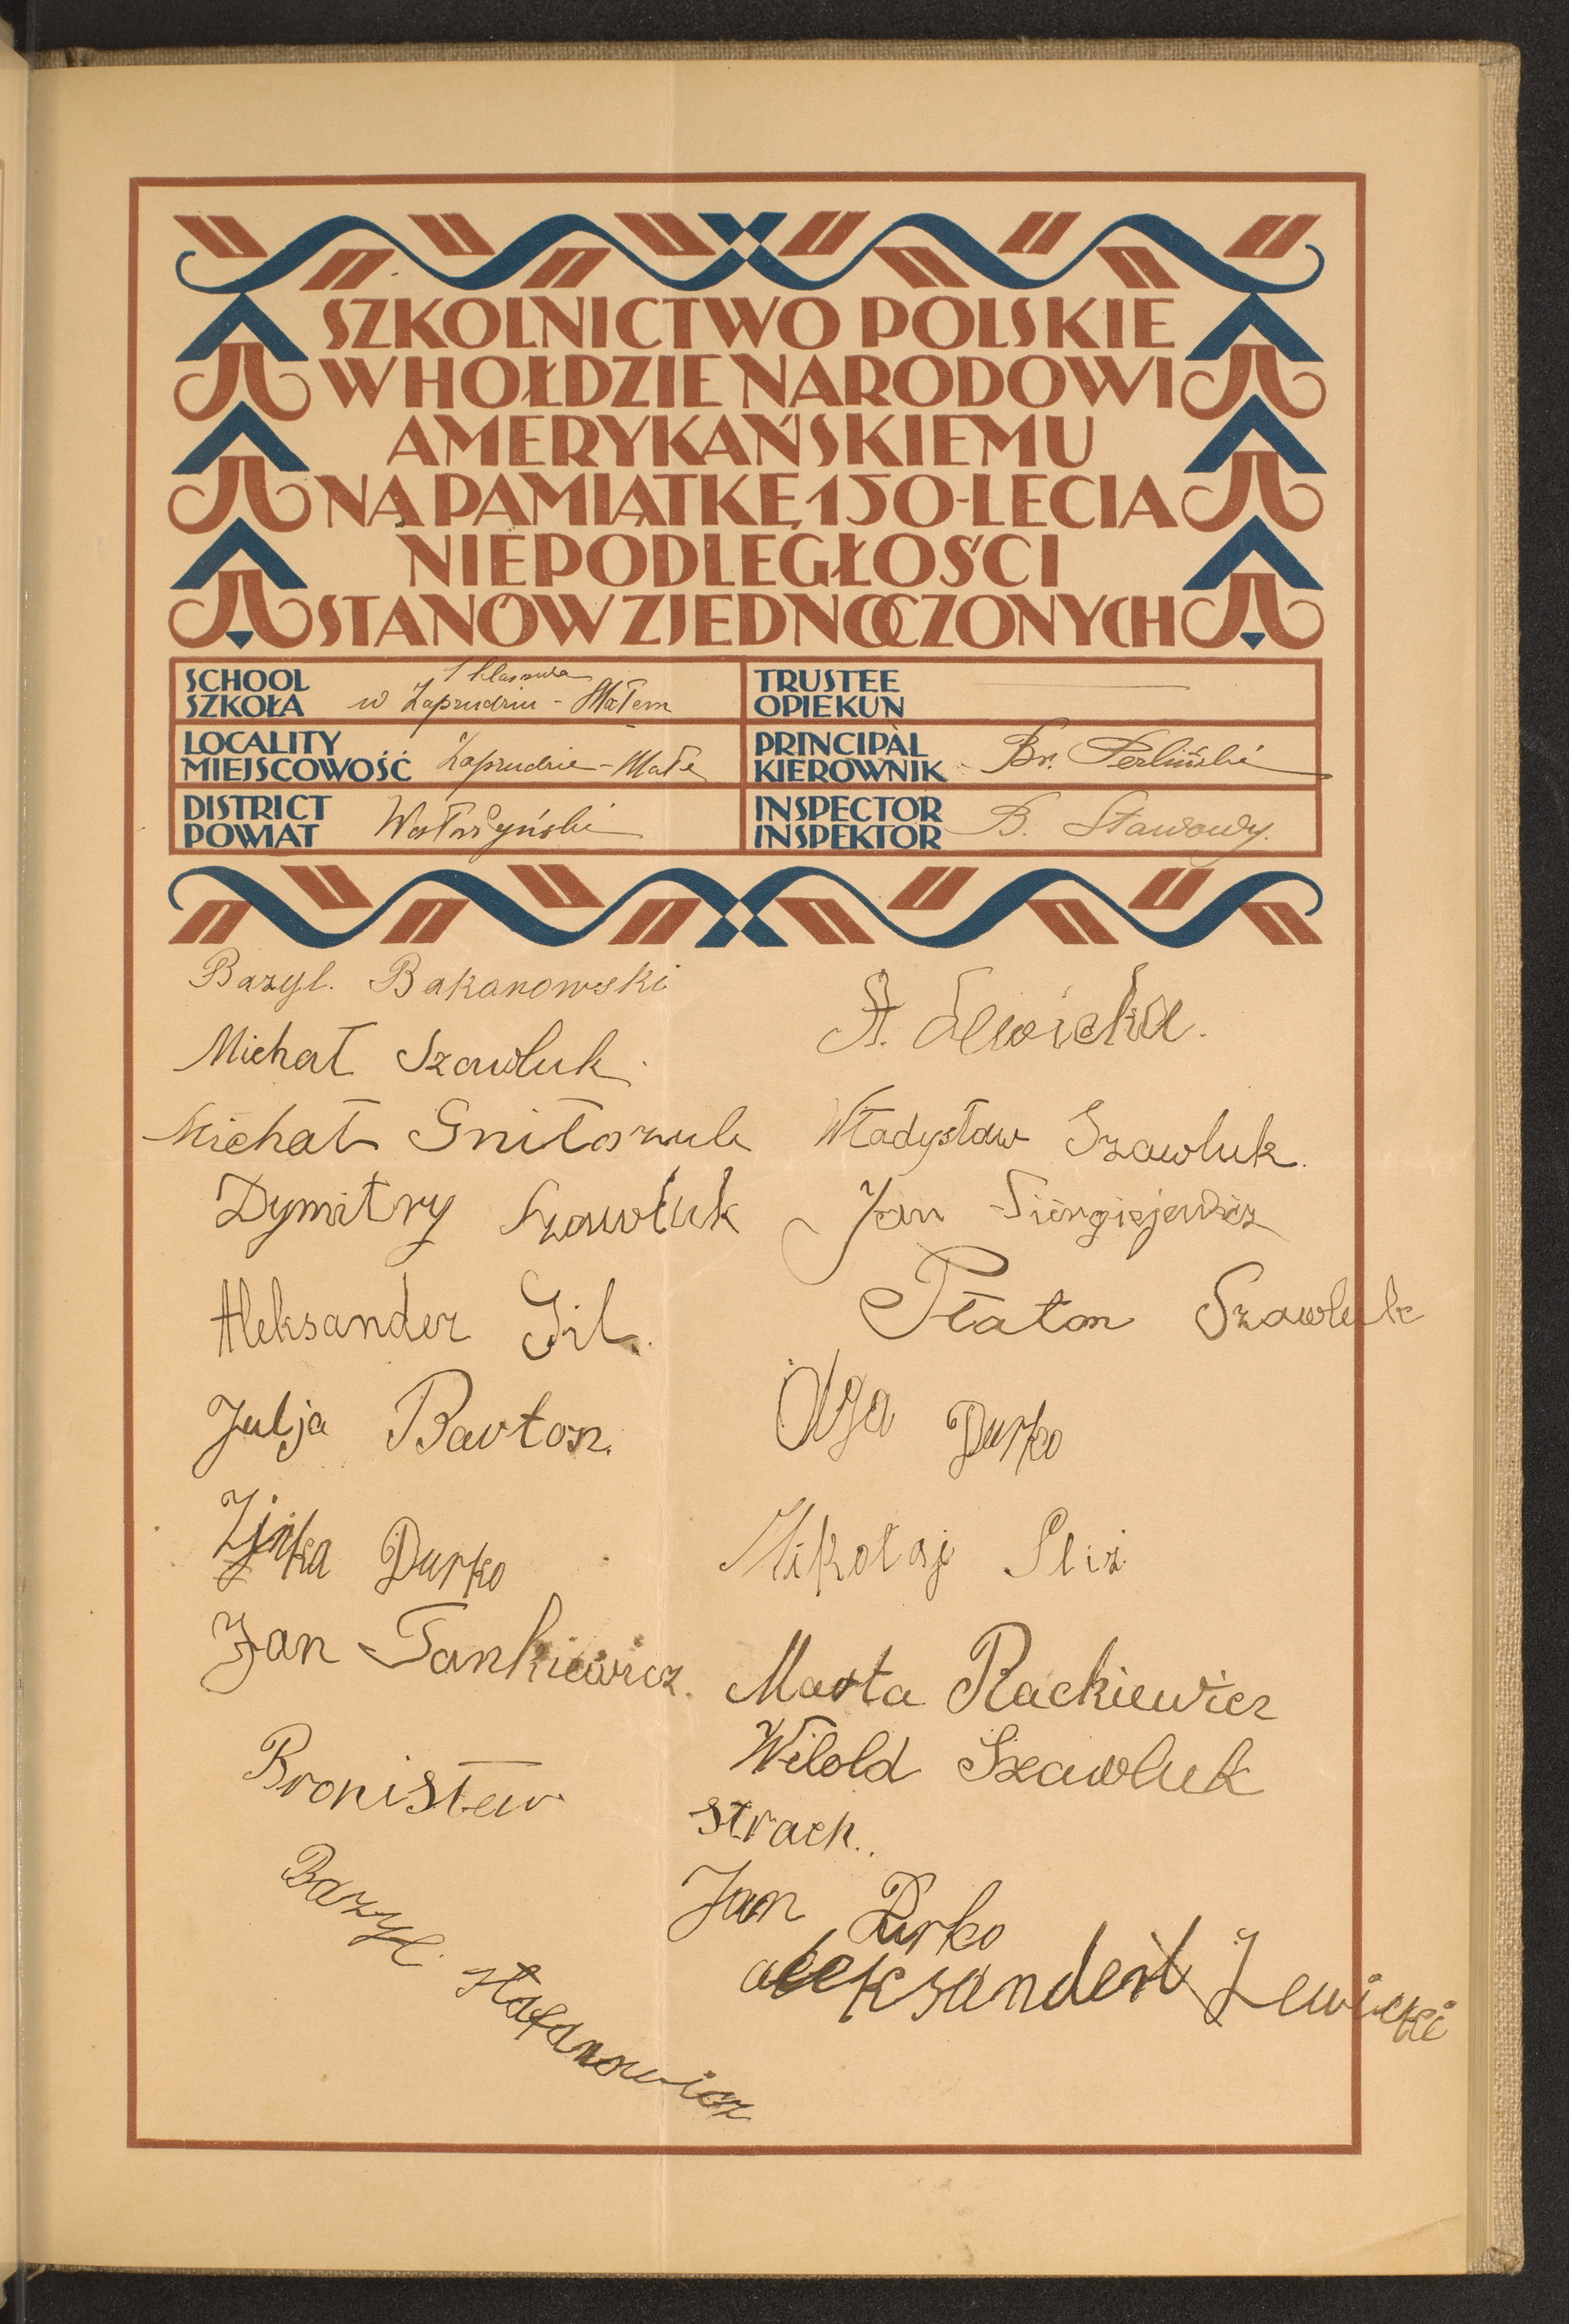 SZKOLNICTWO POLSKIE
W HOŁDZIE NARODOWI
AMERYKAŃSKIEMU
NA PAMIĄTKĘ 150-LECIA
NIEPODLEGŁOŚCI
STANÓW ZJEDNOCZONYCH
SCHOOL
SZKOŁA
1 klasowa
w Zaprudziu - Małem
TRUSTEE
OPIEKUN
LOCALITY
MIEJSCOWOŚĆ Zaprudzie - Małe
PRINCIPAL
KIEROWNIK Br. Perliński
DISTRICT
POWIAT Wołożyński
INSPECTOR
INSPEKTOR B. Stawowy.
Bazyl. Bakanowski
A. Lewicka.
Michał Szawluk.
Michał Gniłozub
Władysław Szawluk.
Dymitry Szawłuk
Jan
Aleksander Gil.
Płaton Szawluk
Julja Bavtoz.
Olga Durko
Zinka Durko
Mikołaj Sliz
Jan Tankiewicz.
Marta Rackiewicz
Witold Szawluk
Bronisław strach..
Jan Durko
Bazyl. stafanowicz
aleksander Lewicki